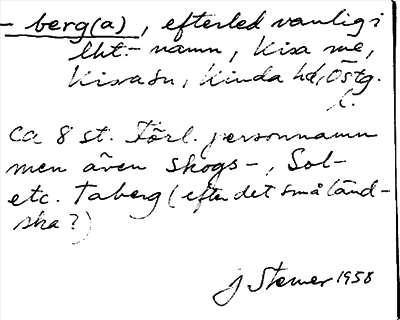 - berg(a), efterled vanlig i
lht.-namn, Kisa sn,
Kisa sn, Kinda hd, Östg.
l.
Ca 8 st. Förl. personnamn
men även Skogs-, Sol-
etc. Taberg (efter det småländ-
ska?)
J Stemer 1958